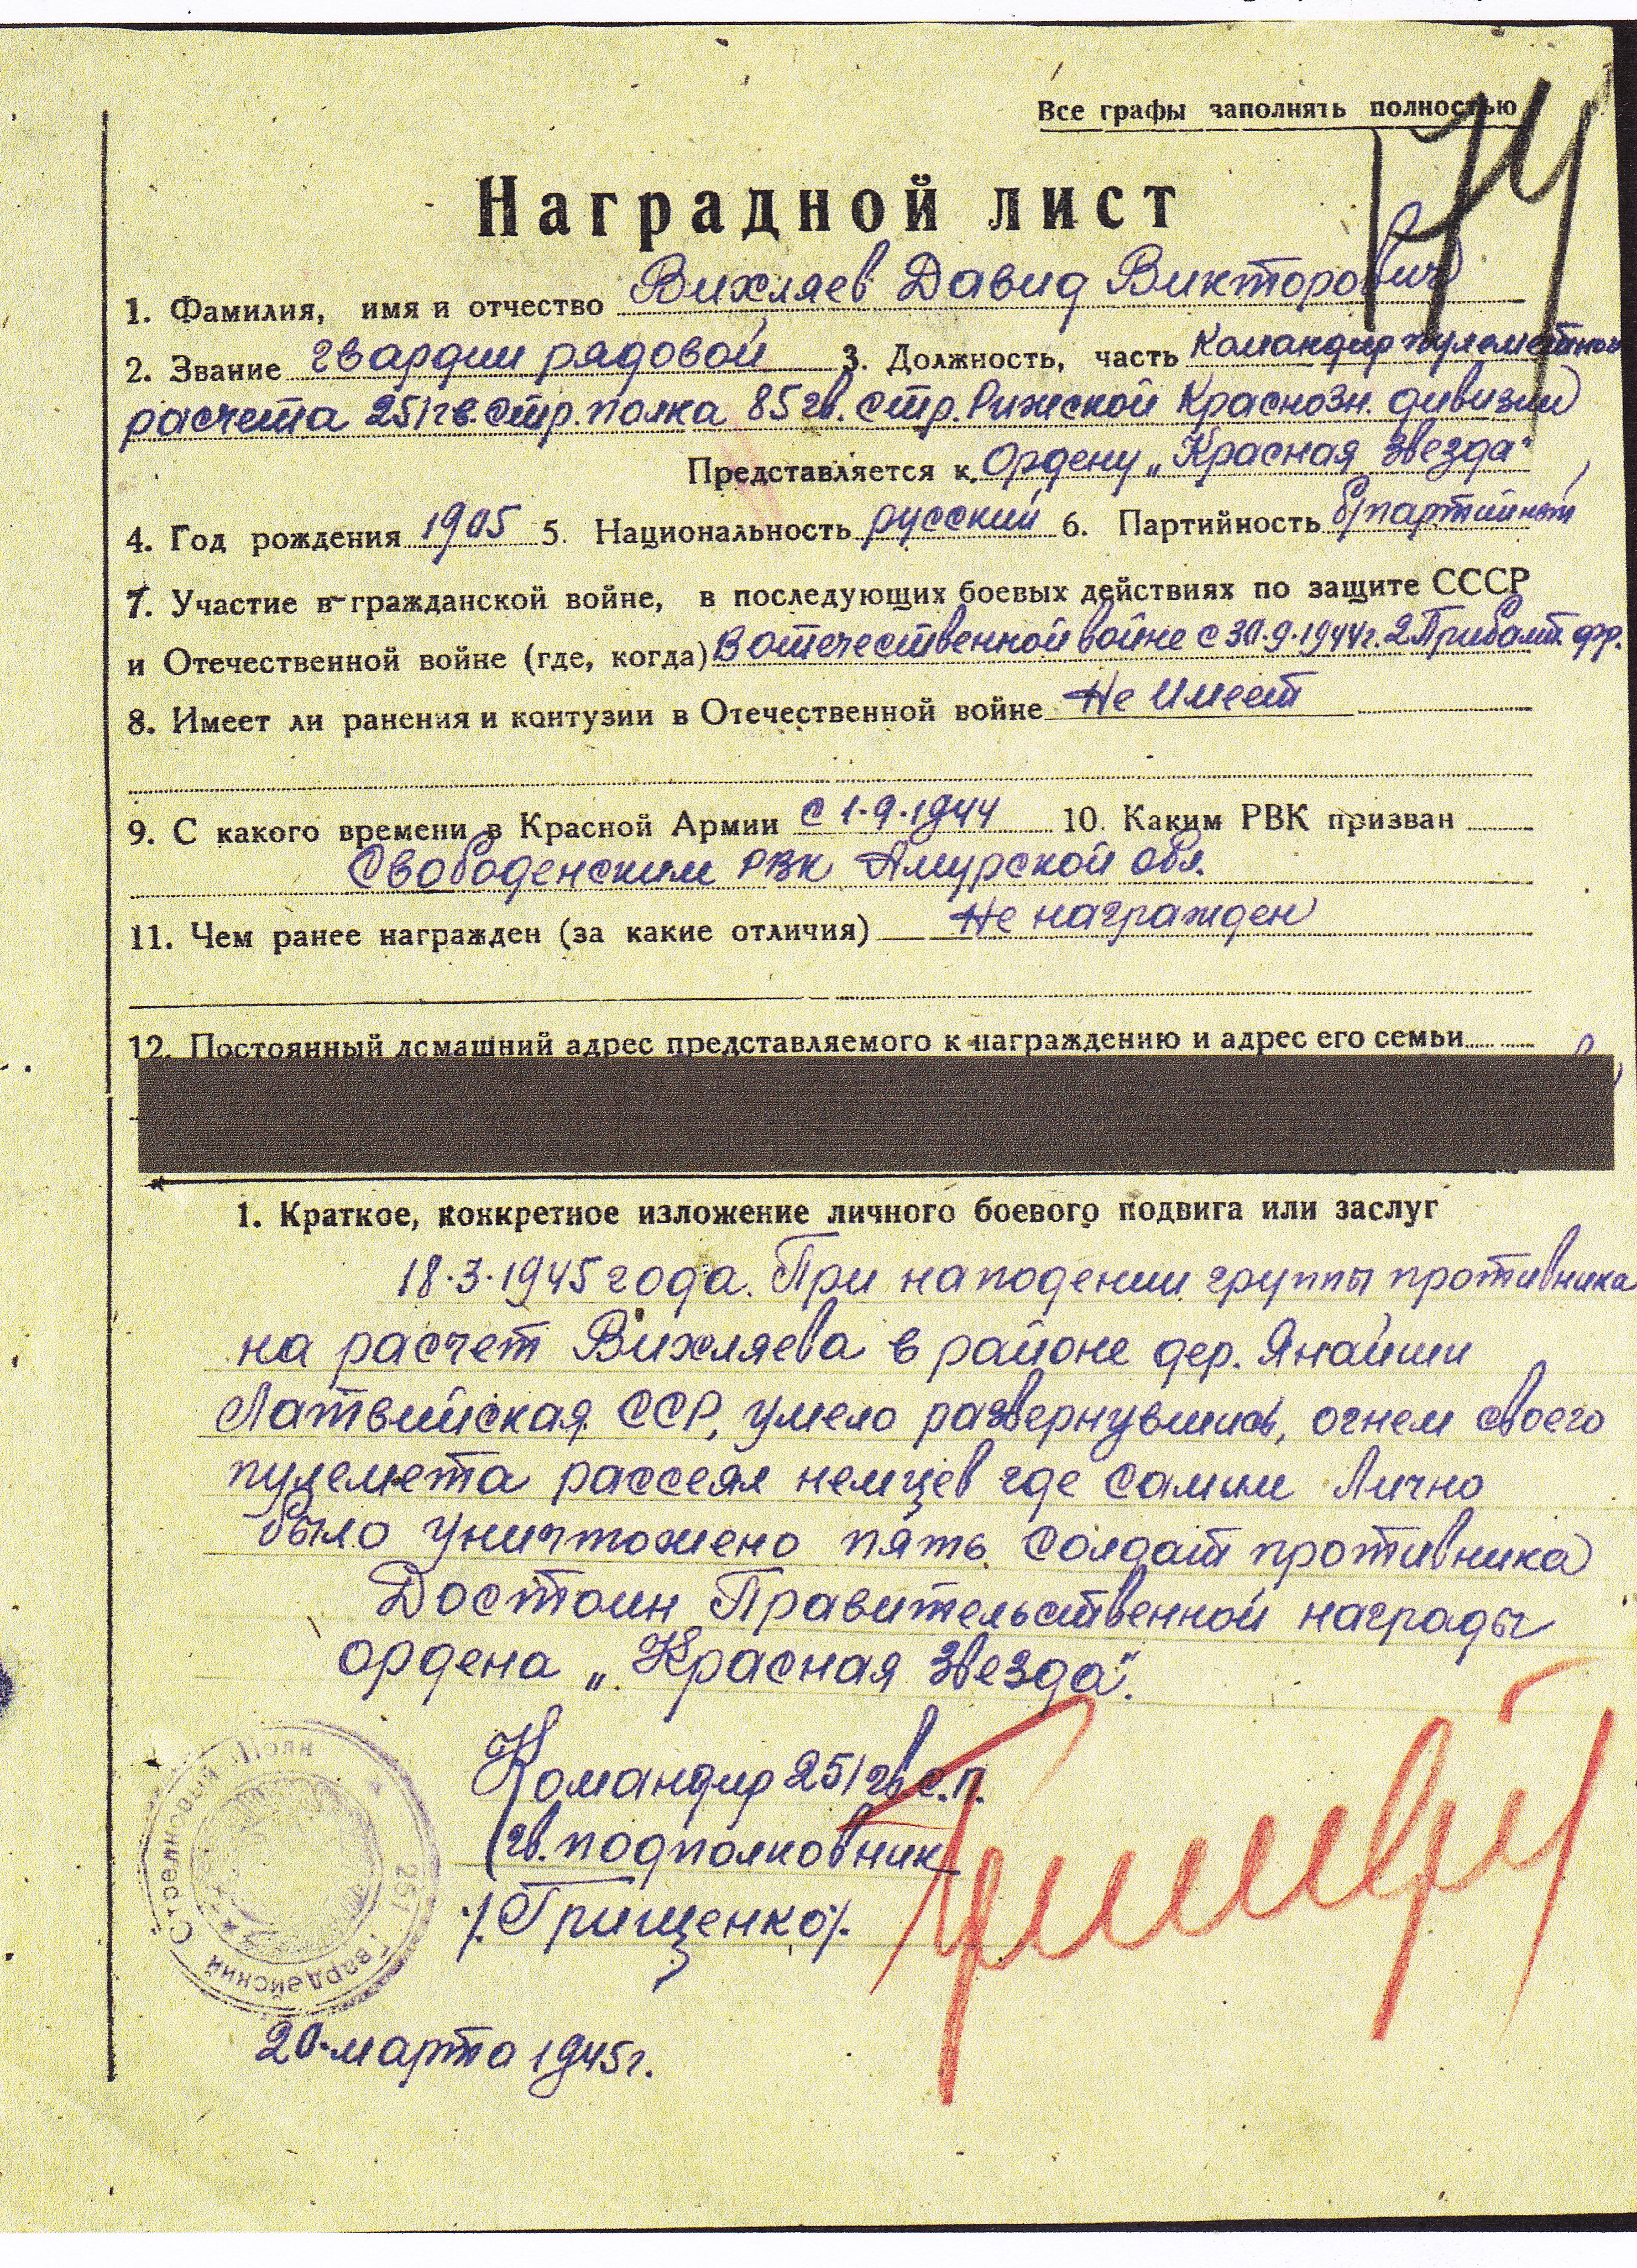 Все графы заполнять полностью
174
Наградной лист
1. Фамилия, имя и отчество Вихляев Давид Викторович
2. Звание гвардии рядовой 3. Должность, часть Командир пулеметного
расчета 251 гв. стр. полка 85 гв. стр. Рижской Краснозн. дивизии
Представляется к Ордену „Красная Звезда"
4. Год рождения 1905 5. Национальность русский 6. Партийность б/партийный
7. Участие в гражданской войне, в последующих боевых действиях по защите СССР
и Отечественной войне (где, когда) В отечественной войне с 30.9.1944г. 2 Прибалт. фр.
8. Имеет ли ранения и контузии в Отечественной войне Не имеет
9. С какого времени в Красной Армии с 1.9.1944 10. Каким РВК призван
Свободенским РВК Амурской обл.
11. Чем ранее награжден (за какие отличия) Не награжден
12. Постоянный домашний адрес представляемого к награждению и адрес его семьи
1. Краткое, конкретное изложение личного боевого подвига или заслуг
18.3.1945 года. При наподении группы противника
на расчет Вихляева в районе дер. Янайши
Латвийская ССР, умело развернувшись, огнем своего
пулемета рассеял немцев где самим Лично
было уничтожено пять солдат противника
Достоин Правительственной награды
ордена „Красная Звезда".
Командир 251 гв. с.п.
гв. подполковник
/Грищенко/.
251 Гвардейский Стрелковый Полк
20 марта 1945г.